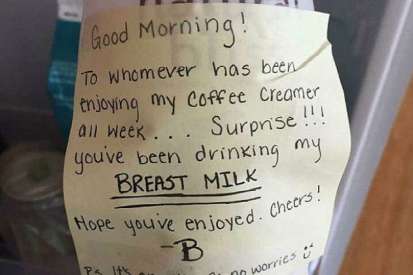 Good Morning!
To whomever has been
enjoying my Coffee Creamer
all week... Surprise!!!
you've been drinking my
BREAST MILK
Hope you've enjoyed. Cheers!
-B
Ps. It's no worries